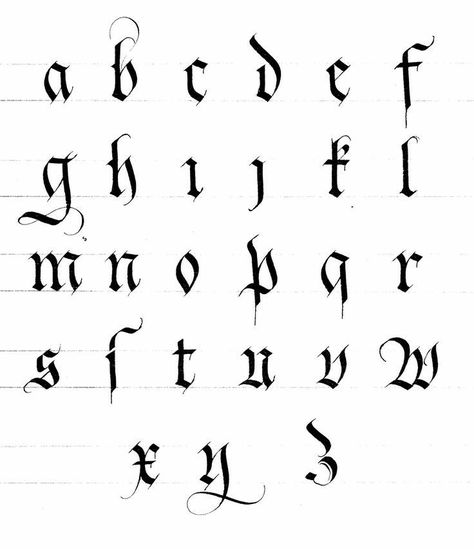 a b c d e f
g h i j k l
m n o p q r
s ſ t u v w
x y z